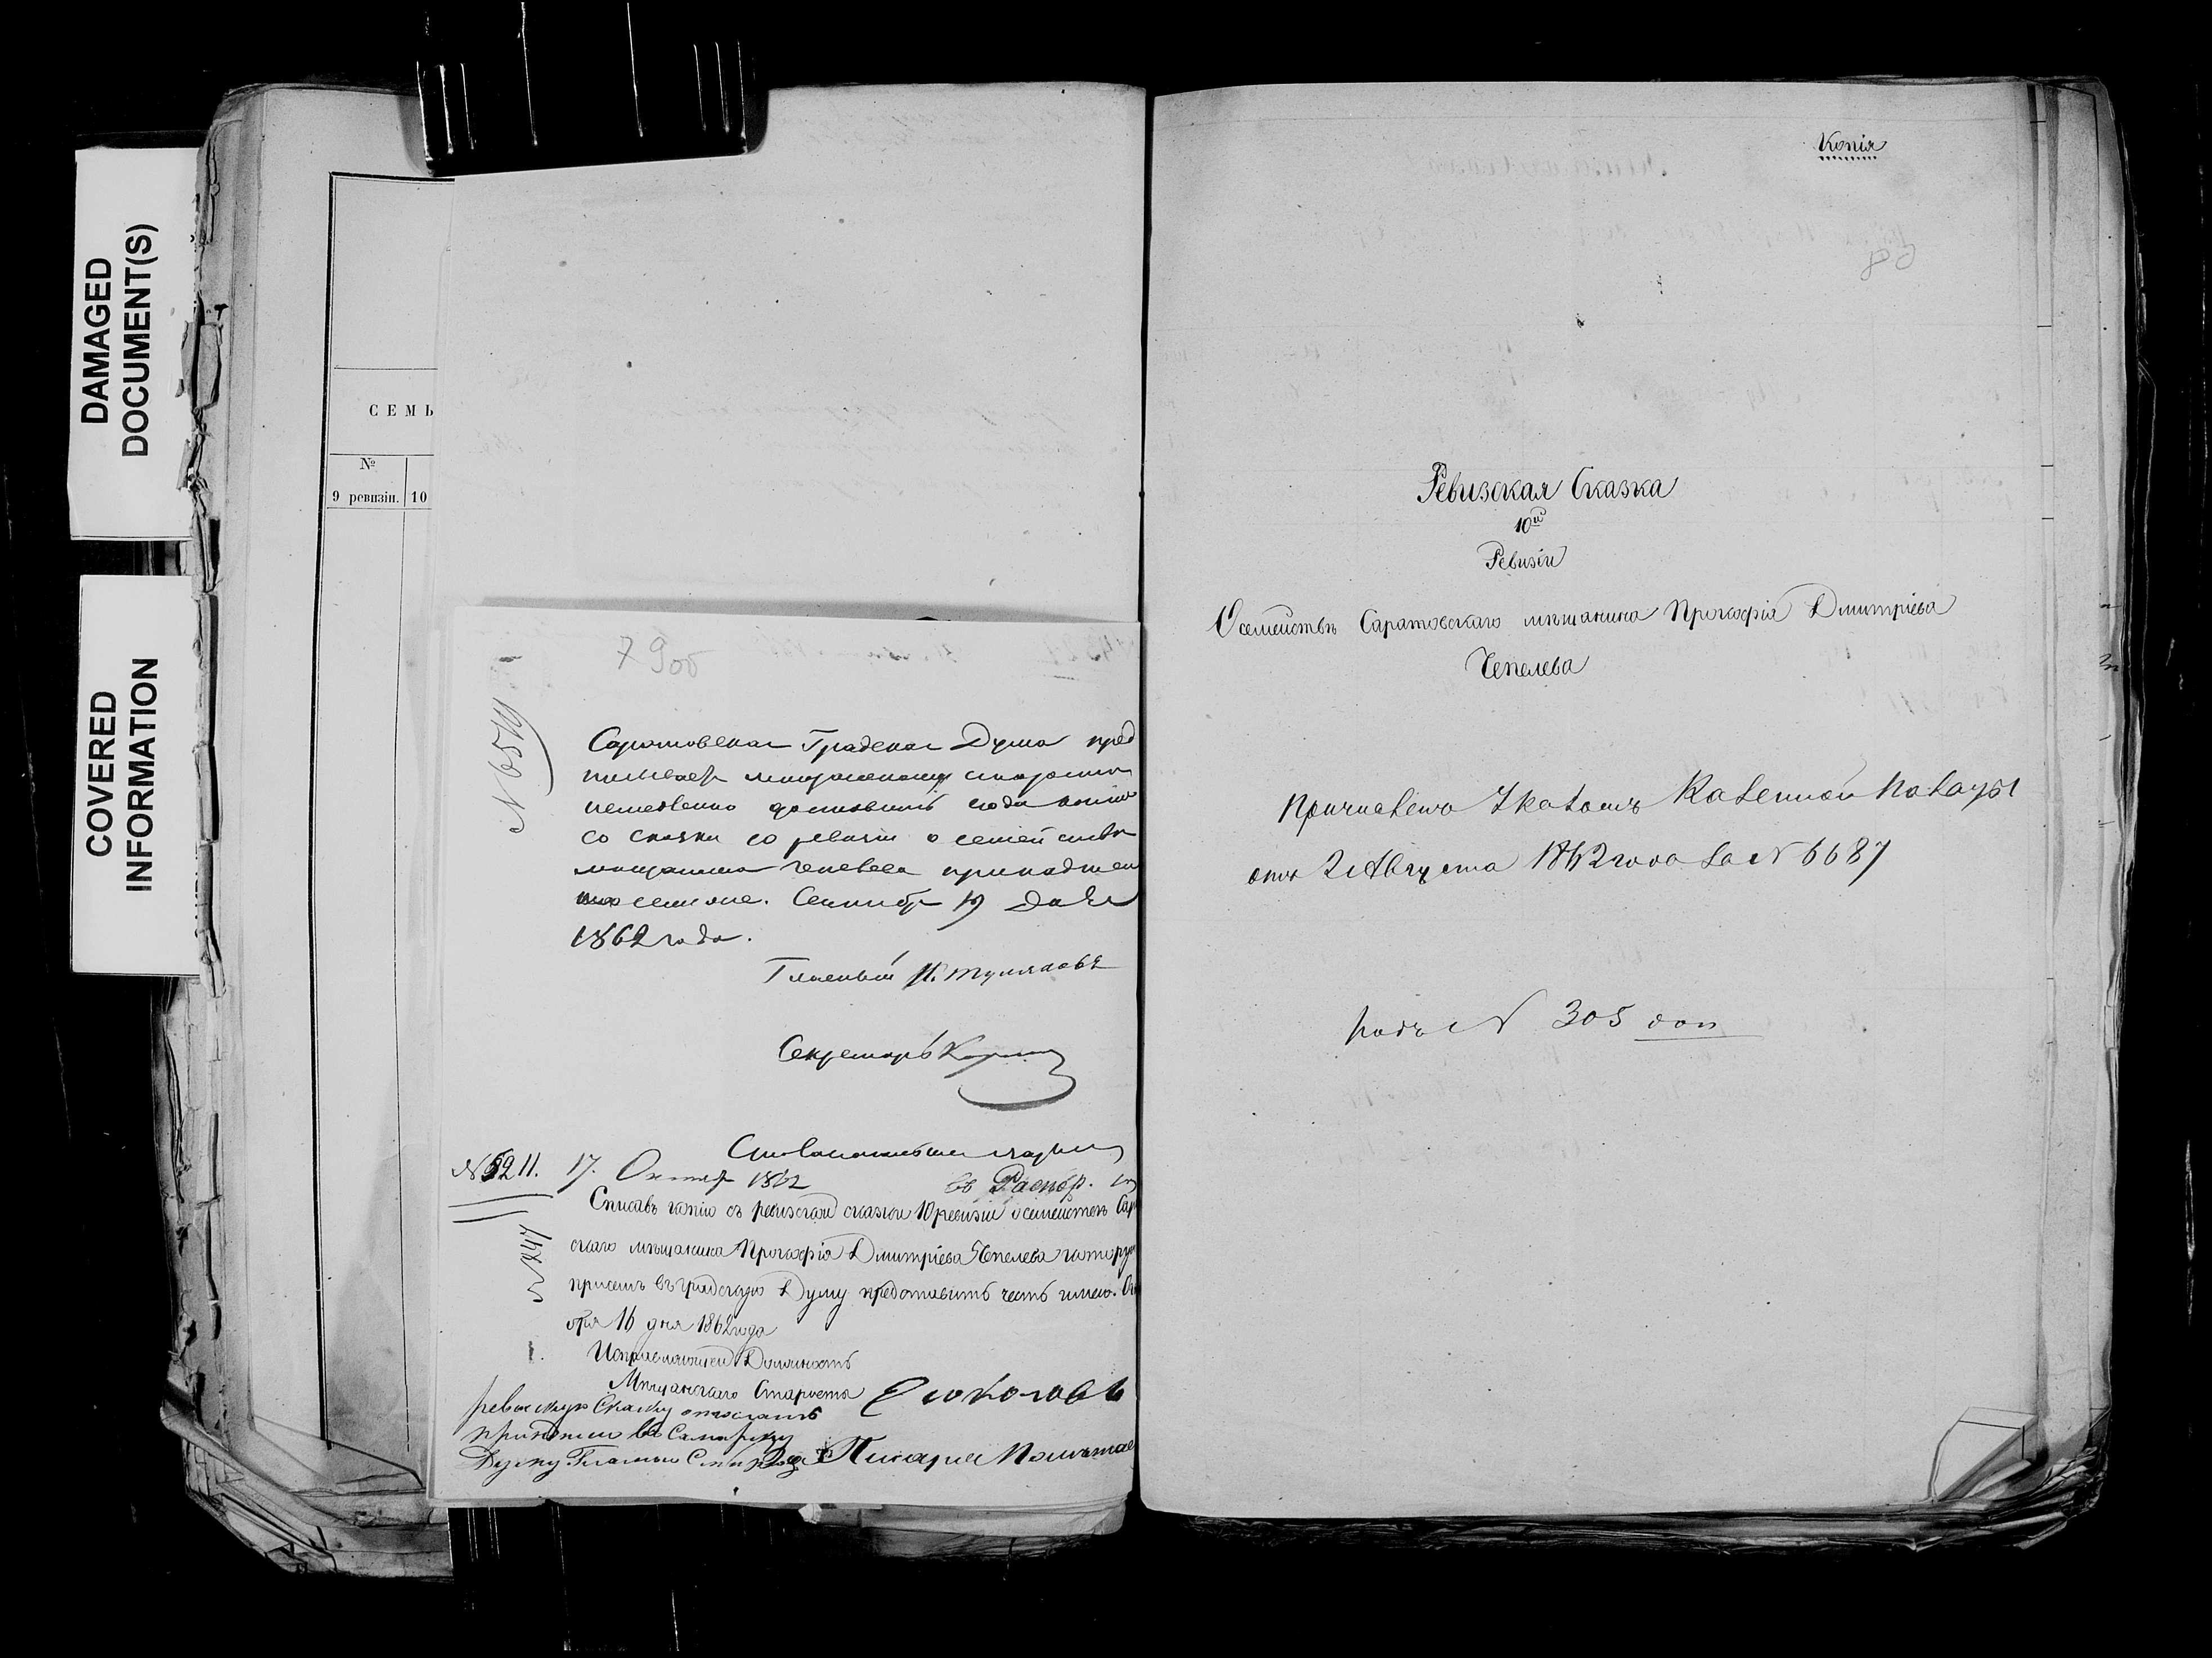 DAMAGED
DOCUMENT(S)
COVERED
INFORMATION
СЕМЬ
№
9 ревизіи. 10
79об
N 6519
Саратовская Градская Дума пред
писываетъ мѣщанскому старостѣ
немедленно доставить сюда копію
со сказки 10 ревизіи о семействѣ
мѣщанина Чепелева
Сентября 19 дня
1862 года.
Гласный И. Туляковъ
Секретарь
N 5211. 17. Октяб 1862
въ Распор.
Списавъ копію съ ревизской сказки 10 ревизіи о семействѣ Сар
скаго мѣщанина Прокофія Дмитріева Чепелева котору
присемъ въ градскую Думу представить честь имею. Ок
ября 16 дня 1862 года
N 247
Исправляющей Должность
Мѣщанскаго Старосты Соколовъ
ревизскую Сказку отослать
при в Самарскую
Думу Гласный
Писарь
Копія
80
Ревизская Сказка
10й
Ревизіи
О семействѣ Саратовскаго мѣщанина Прокофія Дмитріева
Чепелева
Причисленъ Указомъ Казенной Палаты
отъ 2 Августа 1862 года за N 6687
подъ N 305 доп